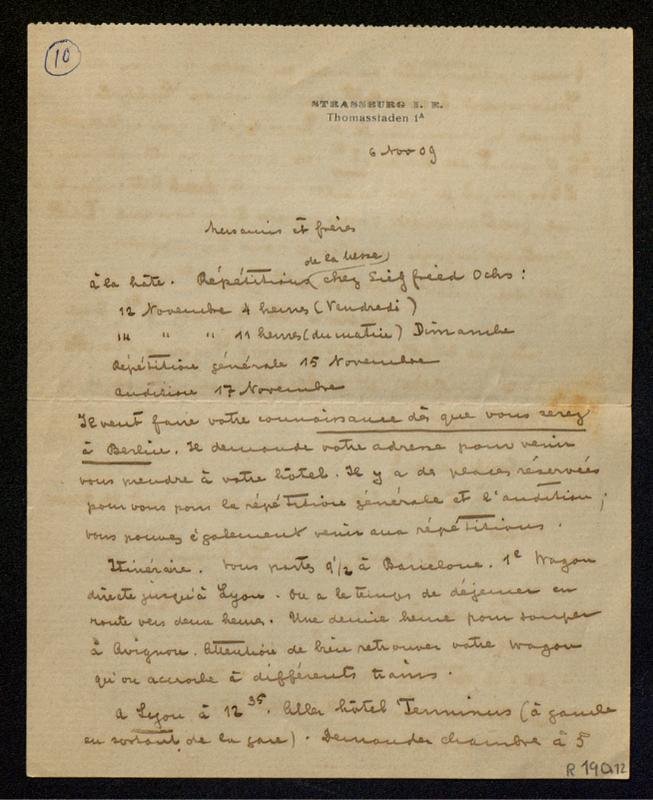 10
STRASSBURG I. E.
Thomasstaden 1A
6 Nov 09
Mes amis et frères
de la Messe
à la hâte. Répétitions chez Siegfried Ochs :
12 Novembre 4 heures (Vendredi)
14 " " 11 heures (du matin) Dimanche
Répétition générale 15 Novembre
Audition 17 Novembre
Il veut faire votre connaissance dès que vous serez
à Berlin. Il demande votre adresse pour venir
vous prendre à votre hôtel. Il y a des places réservées
pour vous pour la répétition générale et l'audition ;
vous pouvez également venir aux répétitions.
Itinéraire. Vous partez 9 1/2 à Barcelone. 1e Wagon
directe jusqu'à Lyon. On a le temps de déjeuner en
route vers deux heures. Une demie heure pour souper
à Avignon. Attention de bien retrouver votre wagon
qu'on accroche à différents trains.
A Lyon à 12 35. Allez hôtel Terminus (à gauche
en sortant de la gare). Demander chambre à 5
R 190.12